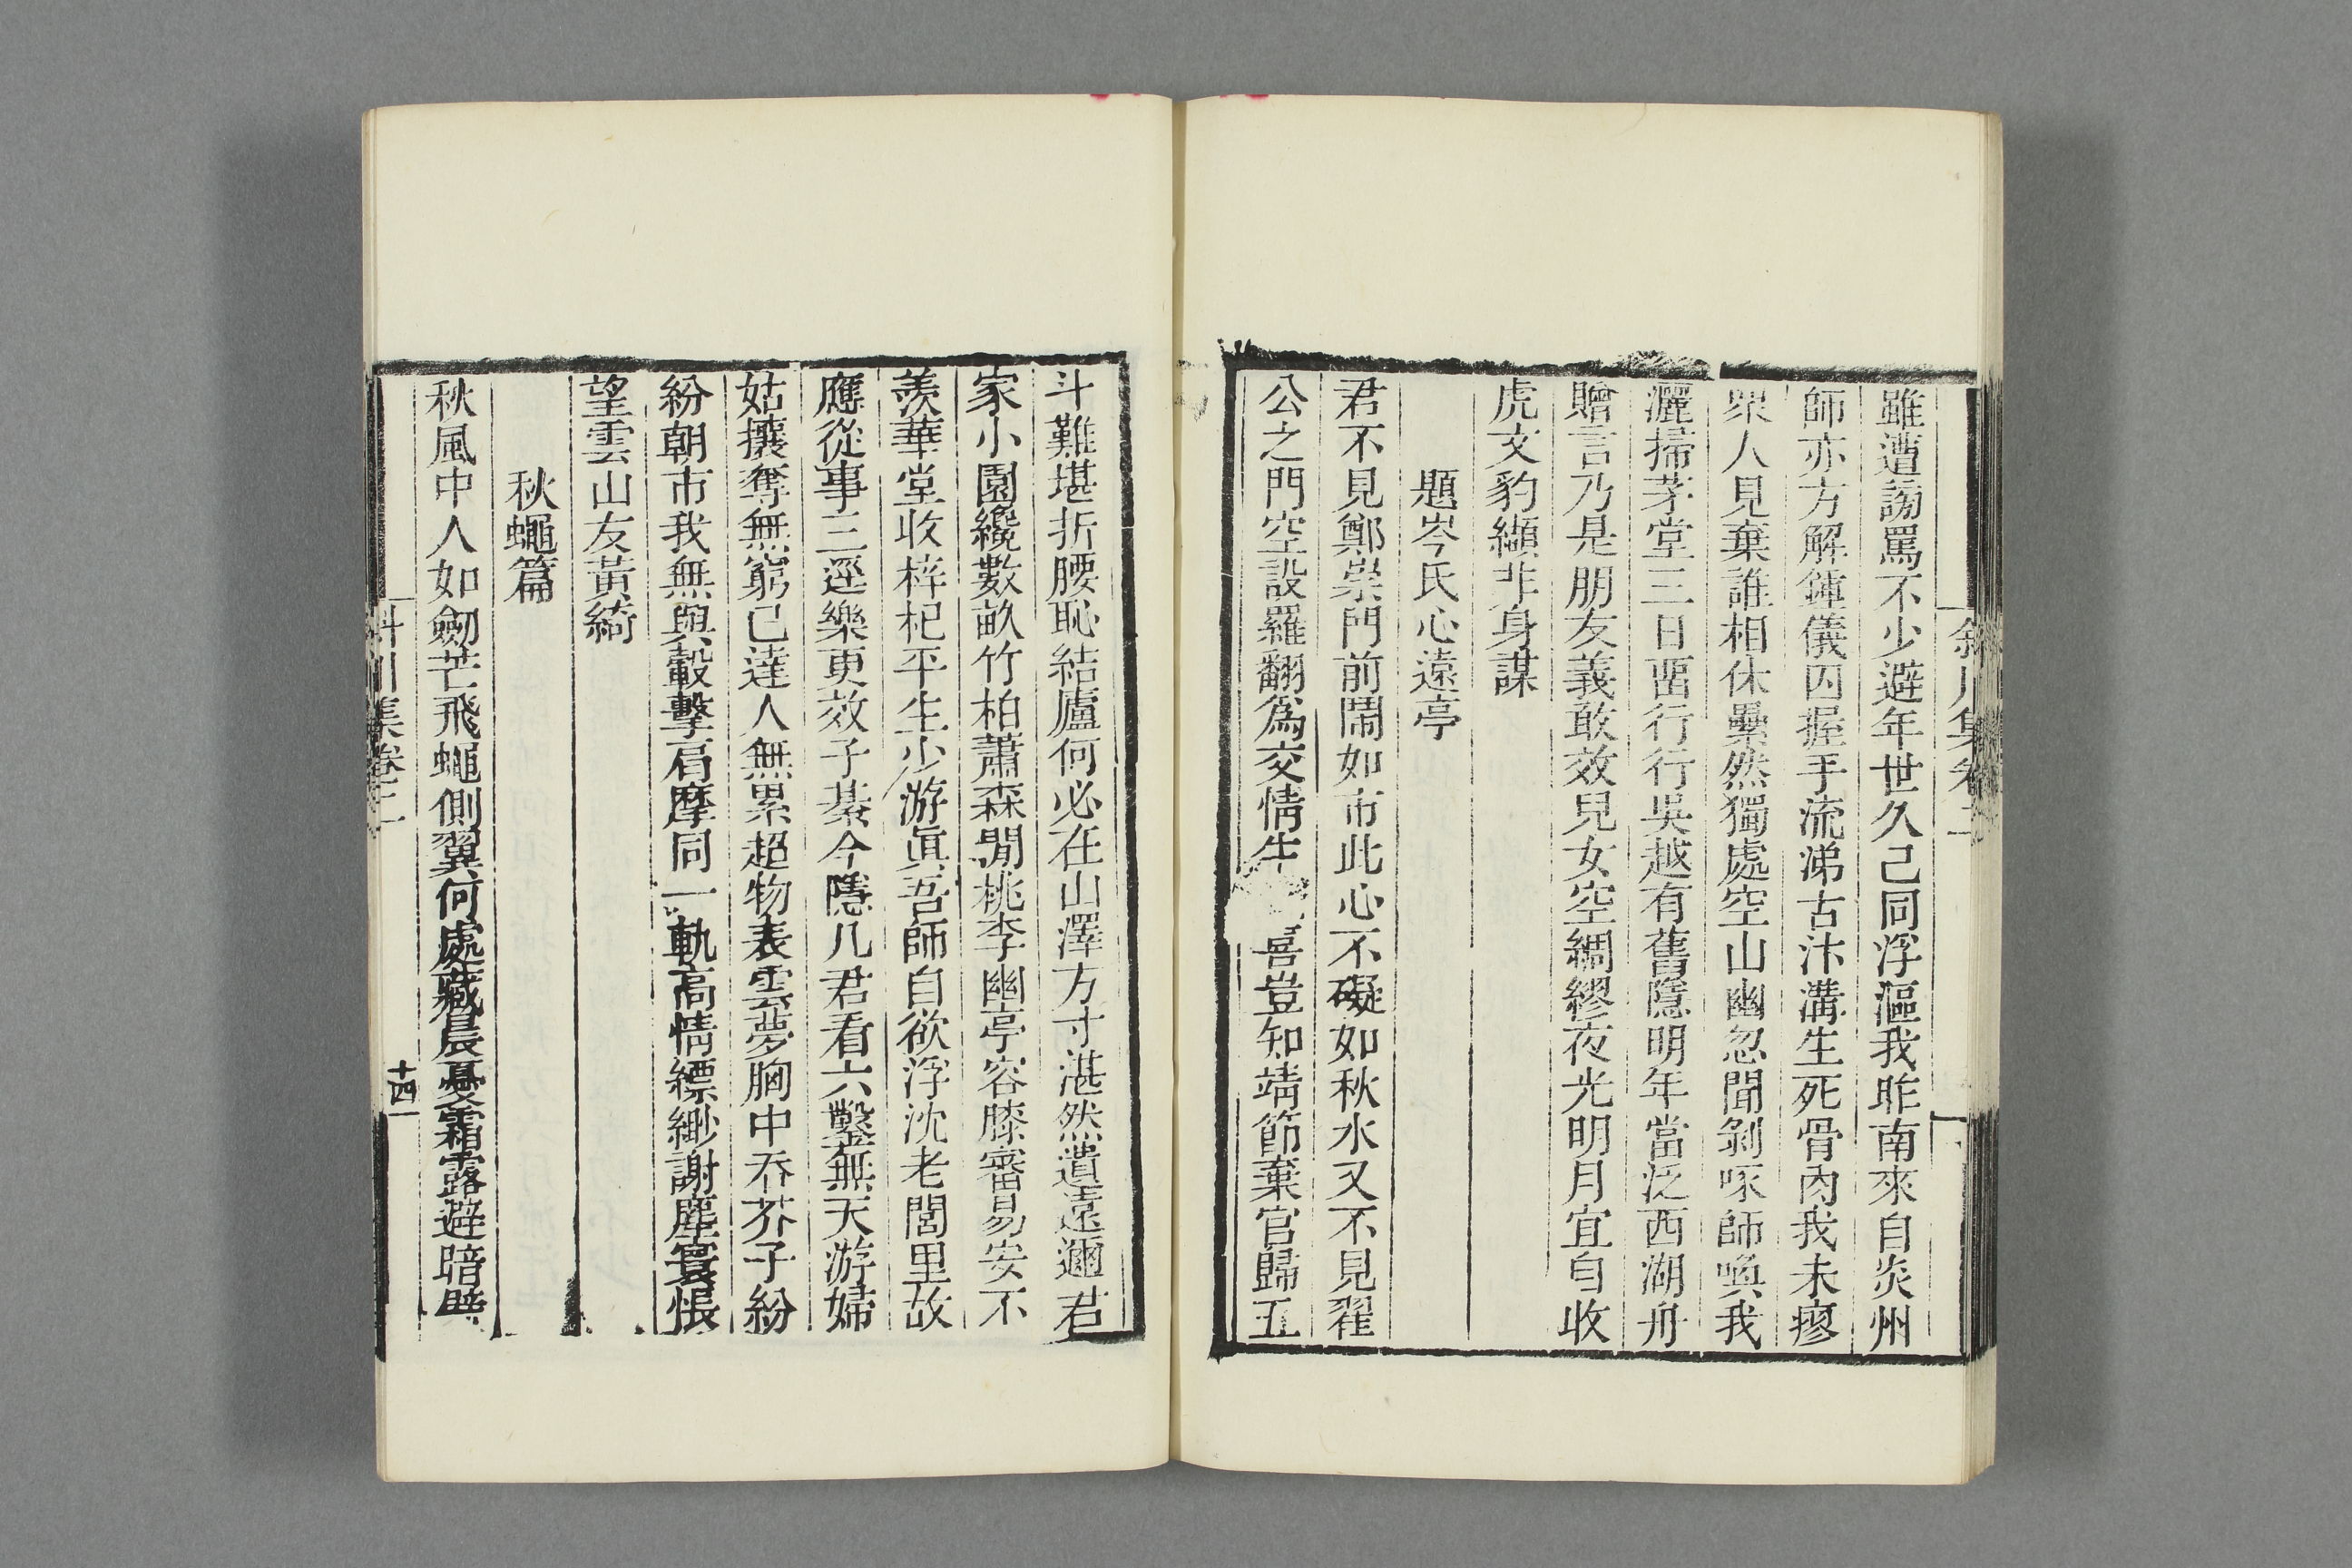 雖遭謗罵不少避年世久已同浮漚我昨南來自炎州
師亦方解鍾儀囚握手流涕古汴溝生死骨肉我未瘳
衆人見棄誰相休纍然獨處空山幽忽聞剝啄師喚我
灑掃茅堂三日畱行行吳越有舊隱明年當泛西湖舟
贈言乃是朋友義敢效兒女空綢繆夜光明月宜自收
虎文豹纈非身謀
題岑氏心遠亭
君不見鄭崇門前鬧如市此心不礙如秋水又不見翟
公之門空設羅翻為交情生喜豈知靖節棄官歸五
斗難堪折腰恥結廬何必在山澤方寸湛然遺遠邇君
家小園纔數畝竹柏蕭森閒桃李幽亭容膝審易安不
羨華堂收梓杞平生少游真吾師自欲浮沈老閭里故
應從事三逕樂更效子綦今隱几君看六鑿無天游婦
姑攘奪無窮已達人無累超物表雲夢胸中吞芥子紛
紛朝市我無與轂擊肩摩同一軌高情縹緲謝塵寰悵
望雲山友黃綺
秋蠅篇
秋風中人如劒芒飛蠅側翼何處藏晨憂霜露避暗
斜川集卷二
十四